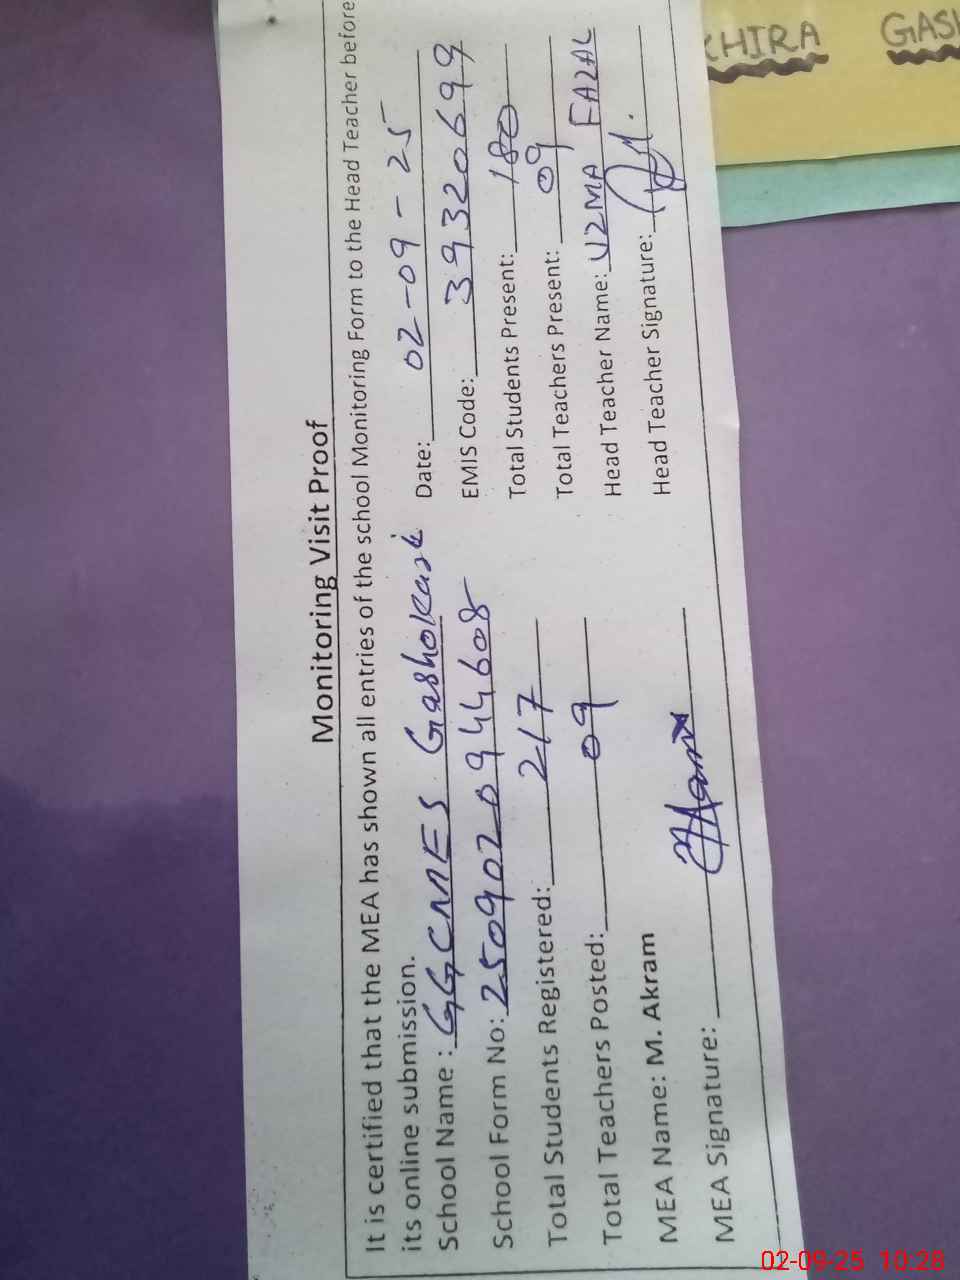 Monitoring Visit Proof
It is certified that the MEA has shown all entries of the school Monitoring Form to the Head Teacher before
its online submission.
School Name : GGCMES Gashokasi
Date: 02-09-25
School Form No: 2509020944608
EMIS Code: 39320699
Total Students Registered: 217
Total Students Present: 180
Total Teachers Posted: 09
Total Teachers Present: 09
MEA Name: M. Akram
Head Teacher Name: UZMA FAZAL
MEA Signature:
Head Teacher Signature:
KHIRA GASH
02-09-25 10:28